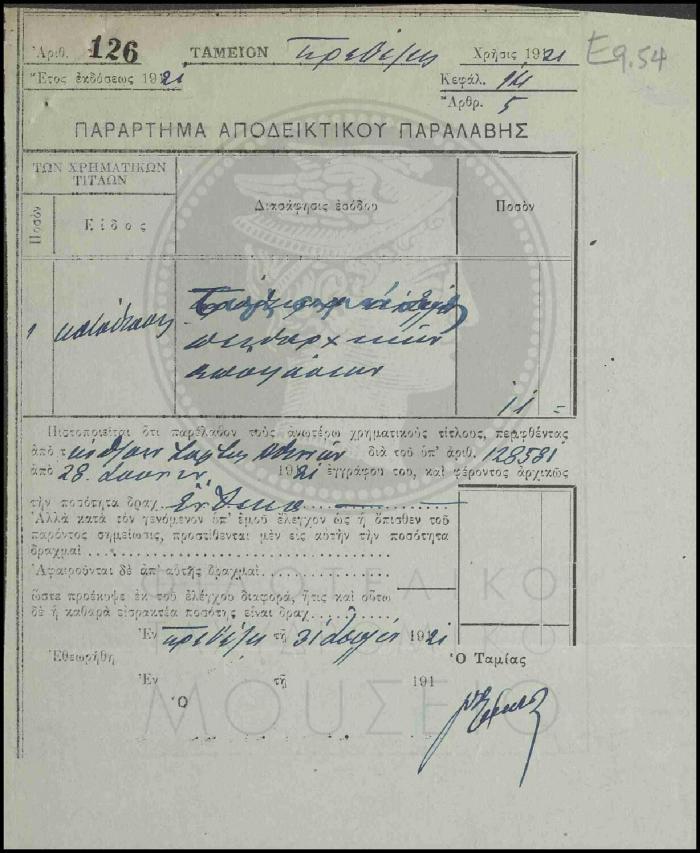 Ἀριθ. 126 ΤΑΜΕΙΟΝ Πρεβέζης Χρῆσις 1921 Eq.54
Ἔτος ἐκδόσεως 1921 Κεφάλ.
Ἄρθρ. 5
ΠΑΡΑΡΤΗΜΑ ΑΠΟΔΕΙΚΤΙΚΟΥ ΠΑΡΑΛΑΒΗΣ
ΤΩΝ ΧΡΗΜΑΤΙΚΩΝ ΤΙΤΛΩΝ
Ποσὸν Εἶδος Διασάφησις ἐσόδου Ποσὸν
1 κατάστασις
πειθαρχικῶν
ἀποφάσεων
11 =
Πιστοποιεῖται ὅτι παρέλαβον τοὺς ἀνωτέρω χρηματικοὺς τίτλους, πεμφθέντας
ἀπὸ τ Χάρτου Ἀθηνῶν διὰ τοῦ ὑπ' ἀριθ. 128581
ἀπὸ 28 1921 ἐγγράφου του, καὶ φέροντος ἀρχικῶς
τὴν ποσότητα δραχ. Ἕνδεκα
Ἀλλὰ κατὰ τὸν γενόμενον ὑπ' ἐμοῦ ἔλεγχον ὡς ἡ ὄπισθεν τοῦ
παρόντος σημείωσις, προστίθενται μὲν εἰς αὐτὴν τὴν ποσότητα
δραχμαὶ
Ἀφαιροῦνται δὲ ἀπ' αὐτῆς δραχμαὶ
ὥστε προέκυψε ἐκ τοῦ ἐλέγχου διαφορά, ἥτις καὶ οὕτω
δὲ ἡ καθαρὰ εἰσρακτέα ποσότης εἶναι δραχ.
Ἐν Πρεβέζῃ τῇ 31 1921
Ἐθεωρήθη Ὁ Ταμίας
Ἐν τῇ 191
Ὁ
ΦΙΛΟΤΕΛΙΚΟ
ΜΟΥΣΕΙΟ